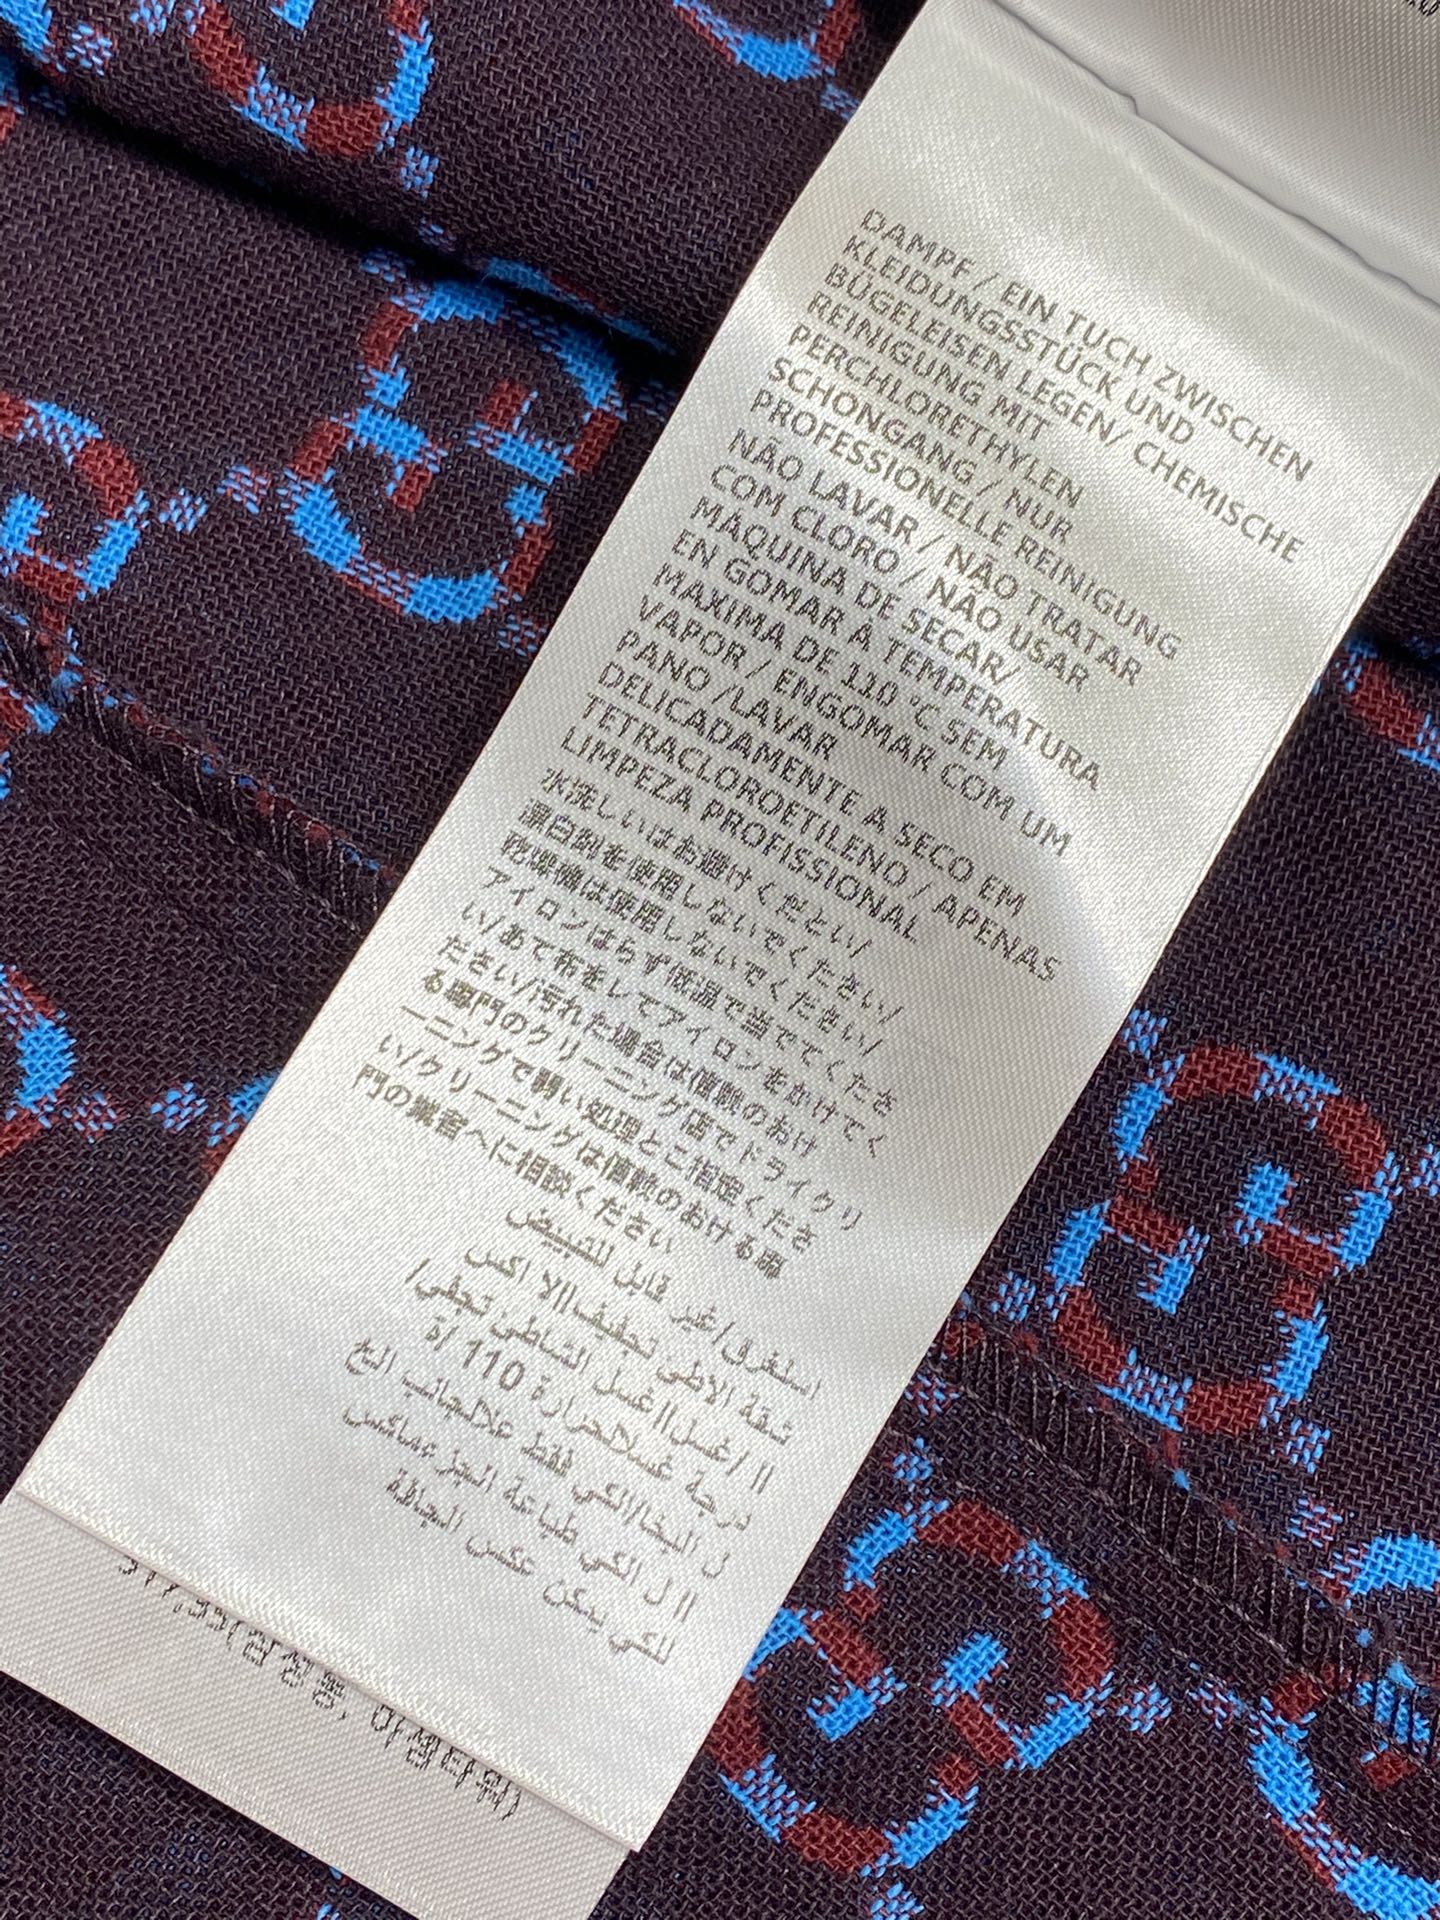 DAMPF / EIN TUCH ZWISCHEN
KLEIDUNGSSTÜCK UND
BÜGELEISEN LEGEN/ CHEMISCHE
REINIGUNG MIT
PERCHLORETHYLEN
SCHONGANG / NUR
PROFESSIONELLE REINIGUNG
NÃO LAVAR / NÃO TRATAR
COM CLORO / NÃO USAR
MÁQUINA DE SECAR/
EN GOMAR A TEMPERATURA
MAXIMA DE 110 °C SEM
VAPOR / ENGOMAR COM UM
PANO /LAVAR
DELICADAMENTE A SECO EM
TETRACLOROETILENO / APENAS
LIMPEZA PROFISSIONAL
水洗しいはお避けくだとい/
漂白剤を使用しないでください/
は使用しないでください/
アイロンはらず低温で当ででくださ
い/あて布をしてアイロンをかけてく
ださい/汚れた場合は信頼のおけ
る専門のクリーニング店でドライクリ
ーニングで弱い処理とご指定くださ
い/クリーニングは信頼のおける専
門の業者へに相談ください
استغرق/غير قابل للتبييض
شقة الاطى تجفيف||الا اكس
|| /غسل||غسل الشاطى، تجفى/
درجة غسلالحرارة 110 /ة
ل البخا/الكي فقط علالجانب الخ
|| ل الكي طباعة الجز عماكس
للكي يمكن عكس الجافة